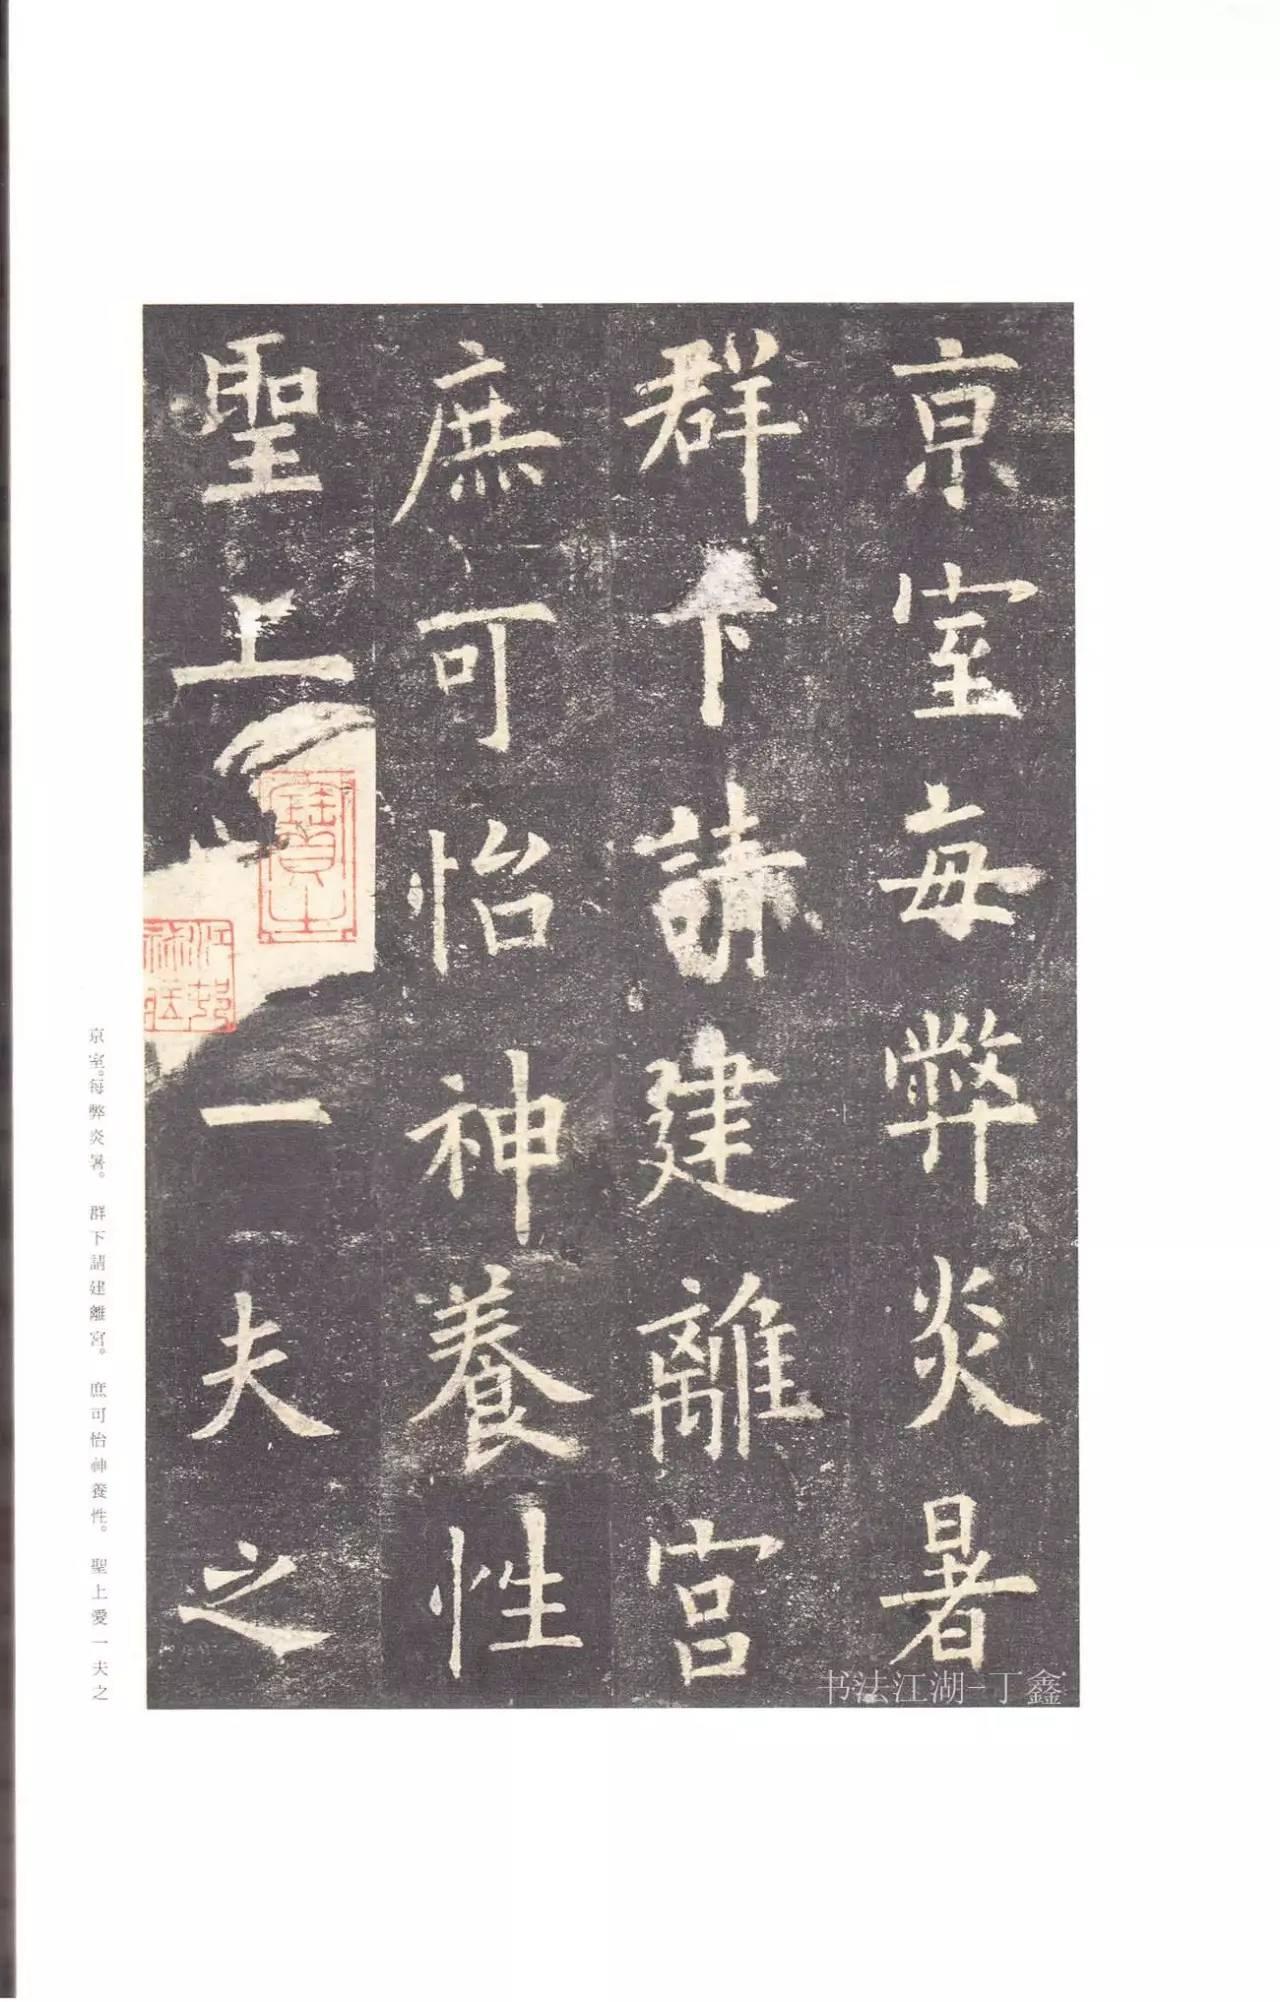 京室每弊炎暑
群下請建離宮
庶可怡神養性
聖上一夫之
京室。每弊炎暑。群下請建離宮。庶可怡神養性。聖上愛一夫之
书法江湖-丁鑫